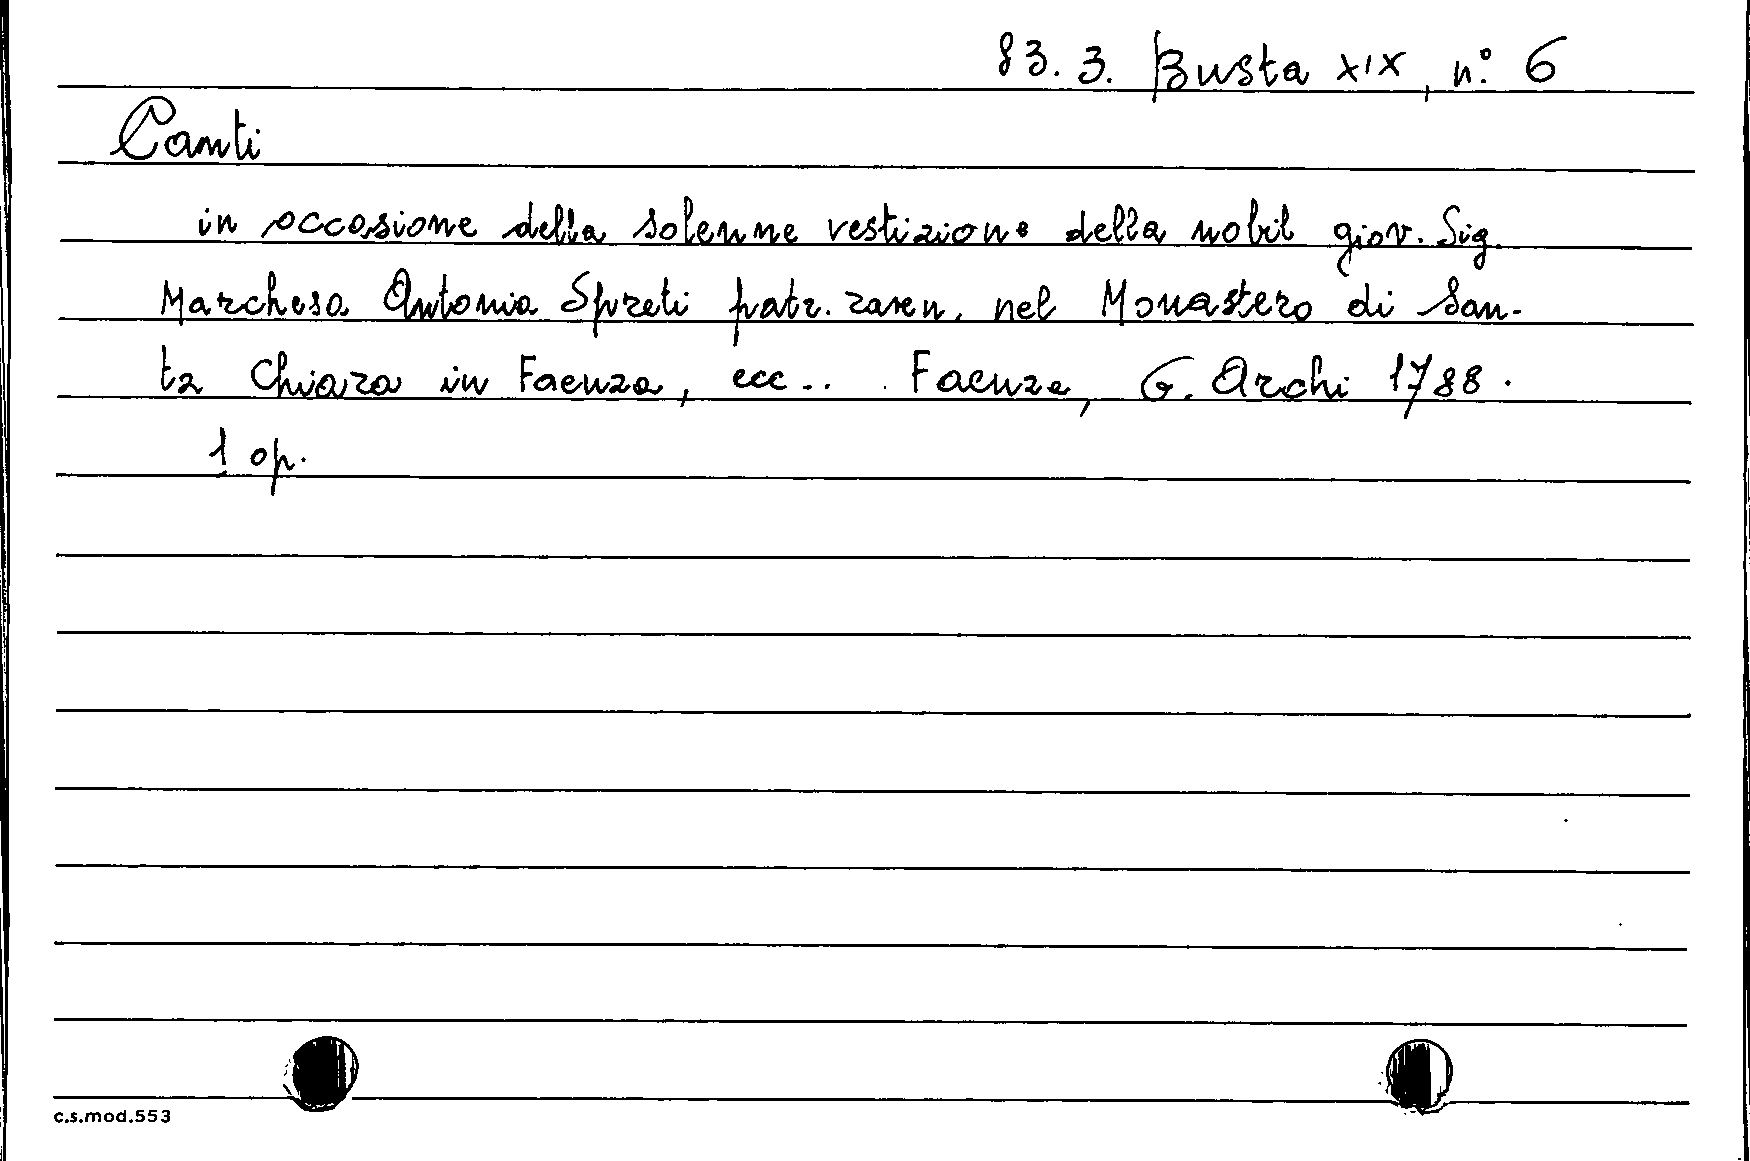 83.3. Busta XIX, n: 6
Canti
in occasione della solenne vestizione della nobil giov. Sig.
Marchesa Antonia Spreti patr. raven. nel Monastero di San-
ta Chiara in Faenza, ecc.. . Faenza, G. Archi 1788.
1 op.
c.s.mod.553